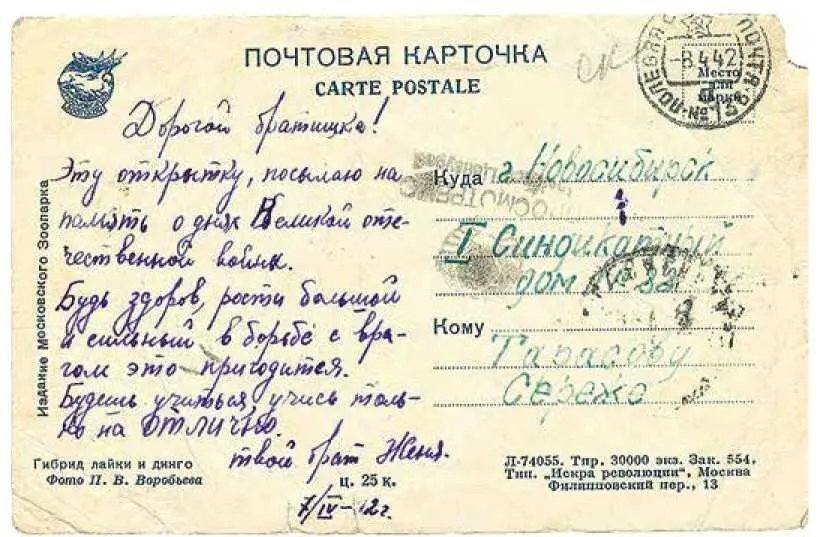 ПОЧТОВАЯ КАРТОЧКА
CARTE POSTALE
ск
ПОЛЕВАЯ ПОЧТА
-8 4 42
Место
для
марки
Дорогой братишка!
Эту открытку, посылаю на
память о днях Великой оте-
чественной войны.
Будь здоров, рости большой
и сильный в борьбе с вра-
гом это пригодится.
Будешь учиться, учись толь-
ко на ОТЛИЧНО.
твой брат Женя.
7/IV-42г.
Куда г. Новосибирск
I Синдикатный
дом № 32
Кому
Тарасову
Сереже
Издание Московского Зоопарка
Гибрид лайки и динго
Фото П. В. Воробьева
ц. 25 к.
Л-74055. Тир. 30000 экз. Зак. 554.
Тип. „Искра революции“, Москва
Филипповский пер., 13